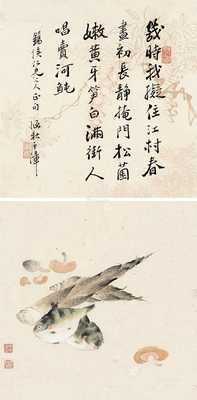 幾時我擬住江村春
晝初長靜掩門松菌
嫩黃牙筍白滿街人
唱賣河魨
仁兄大人正句